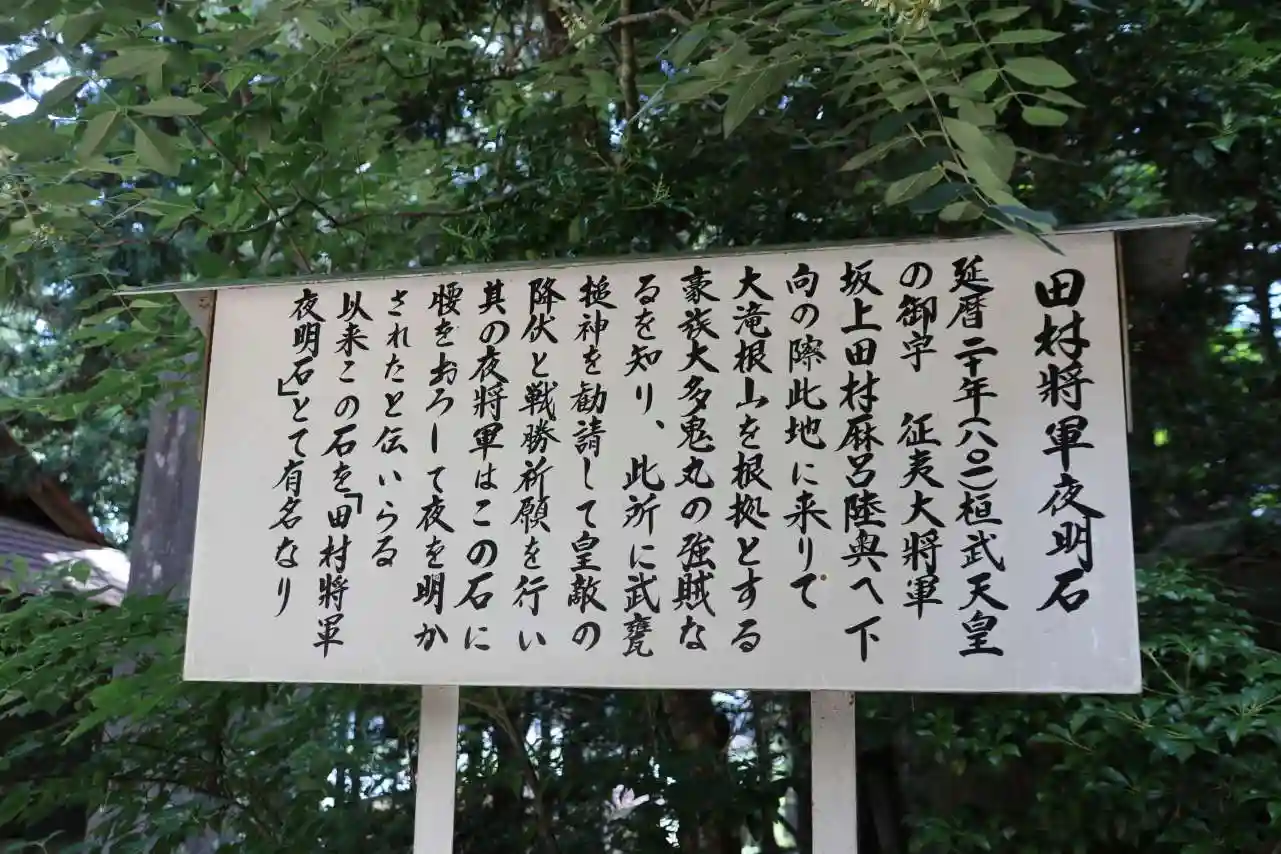 田村将軍夜明石
延暦二十年(八〇一)桓武天皇
の御宇　征夷大将軍
坂上田村麻呂陸奥へ下
向の際此地に来りて
大滝根山を根拠とする
豪族大多鬼丸の強賊な
るを知り、此所に武甕
槌神を勧請して皇敵の
降伏と戦勝祈願を行い
其の夜将軍はこの石に
腰をおろして夜を明か
されたと伝いらる
以来この石を「田村将軍
夜明石」とて有名なり